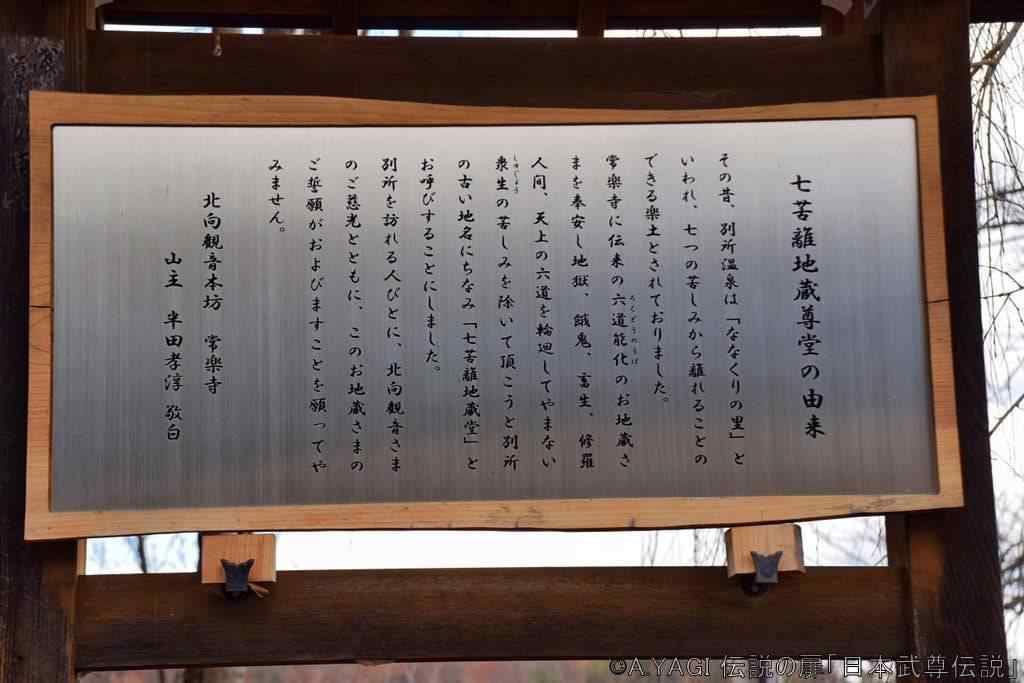 七苦離地蔵尊堂の由来
その昔、別所温泉は「ななくりの里」と
いわれ、七つの苦しみから離れることの
できる楽土とされておりました。
常楽寺に伝来の六道能化のお地蔵さ
ろくどうのうげ
まを奉安し地獄、餓鬼、畜生、修羅
人间、天上の六道を輪廻してやまない
衆生の苦しみを除いて頂こうと別所
しゅじょう
の古い地名にちなみ「七苦離地蔵堂」と
お呼びすることにしました。
別所を訪れる人びとに、北向観音さま
のご慈光とともに、このお地蔵さまの
ご誓願がおよびますことを願ってや
みません。
北向觀音本坊 常楽寺
山主 半田孝淳 敬白
©A.YAGI 伝説の扉「日本武尊伝説」